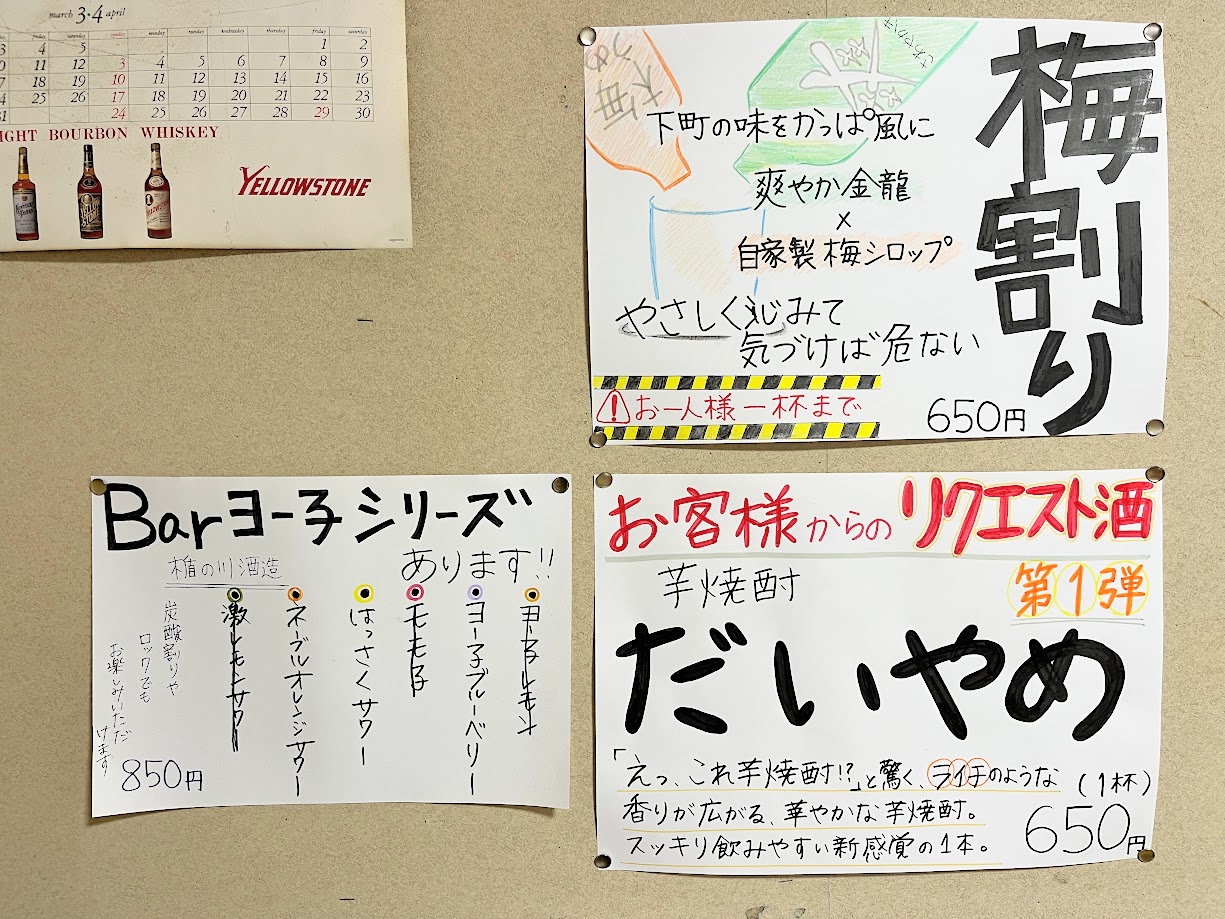 march 3・4 april
friday saturday sunday monday tuesday wednesday thursday friday saturday
1 2
4 5 3 4 5 6 7 8 9
11 12 10 11 12 13 14 15 16
18 19 17 18 19 20 21 22 23
25 26 24 25 26 27 28 29 30
IGHT BOURBON WHISKEY
YELLOWSTONE
梅割り
下町の味をかっぱ風に
爽やか金龍
×
自家製梅シロップ
やさしく沁みて
気づけば危ない
お一人様一杯まで
650円
Barヨー子シリーズ
あります!!
楯の川酒造
ヨー子レモン
ヨー子ブルーベリー
モモ子
はっさくサワー
ネーブルオレンジサワー
激レモンサワー
炭酸割りや
ロックでも
お楽しみいただ
けます
850円
お客様からのリクエスト酒
第1弾
芋焼酎
だいやめ
「えっ、これ芋焼酎!?」と驚く、ライチのような
香りが広がる、華やかな芋焼酎。
スッキリ飲みやすい新感覚の1本。
(1杯)
650円